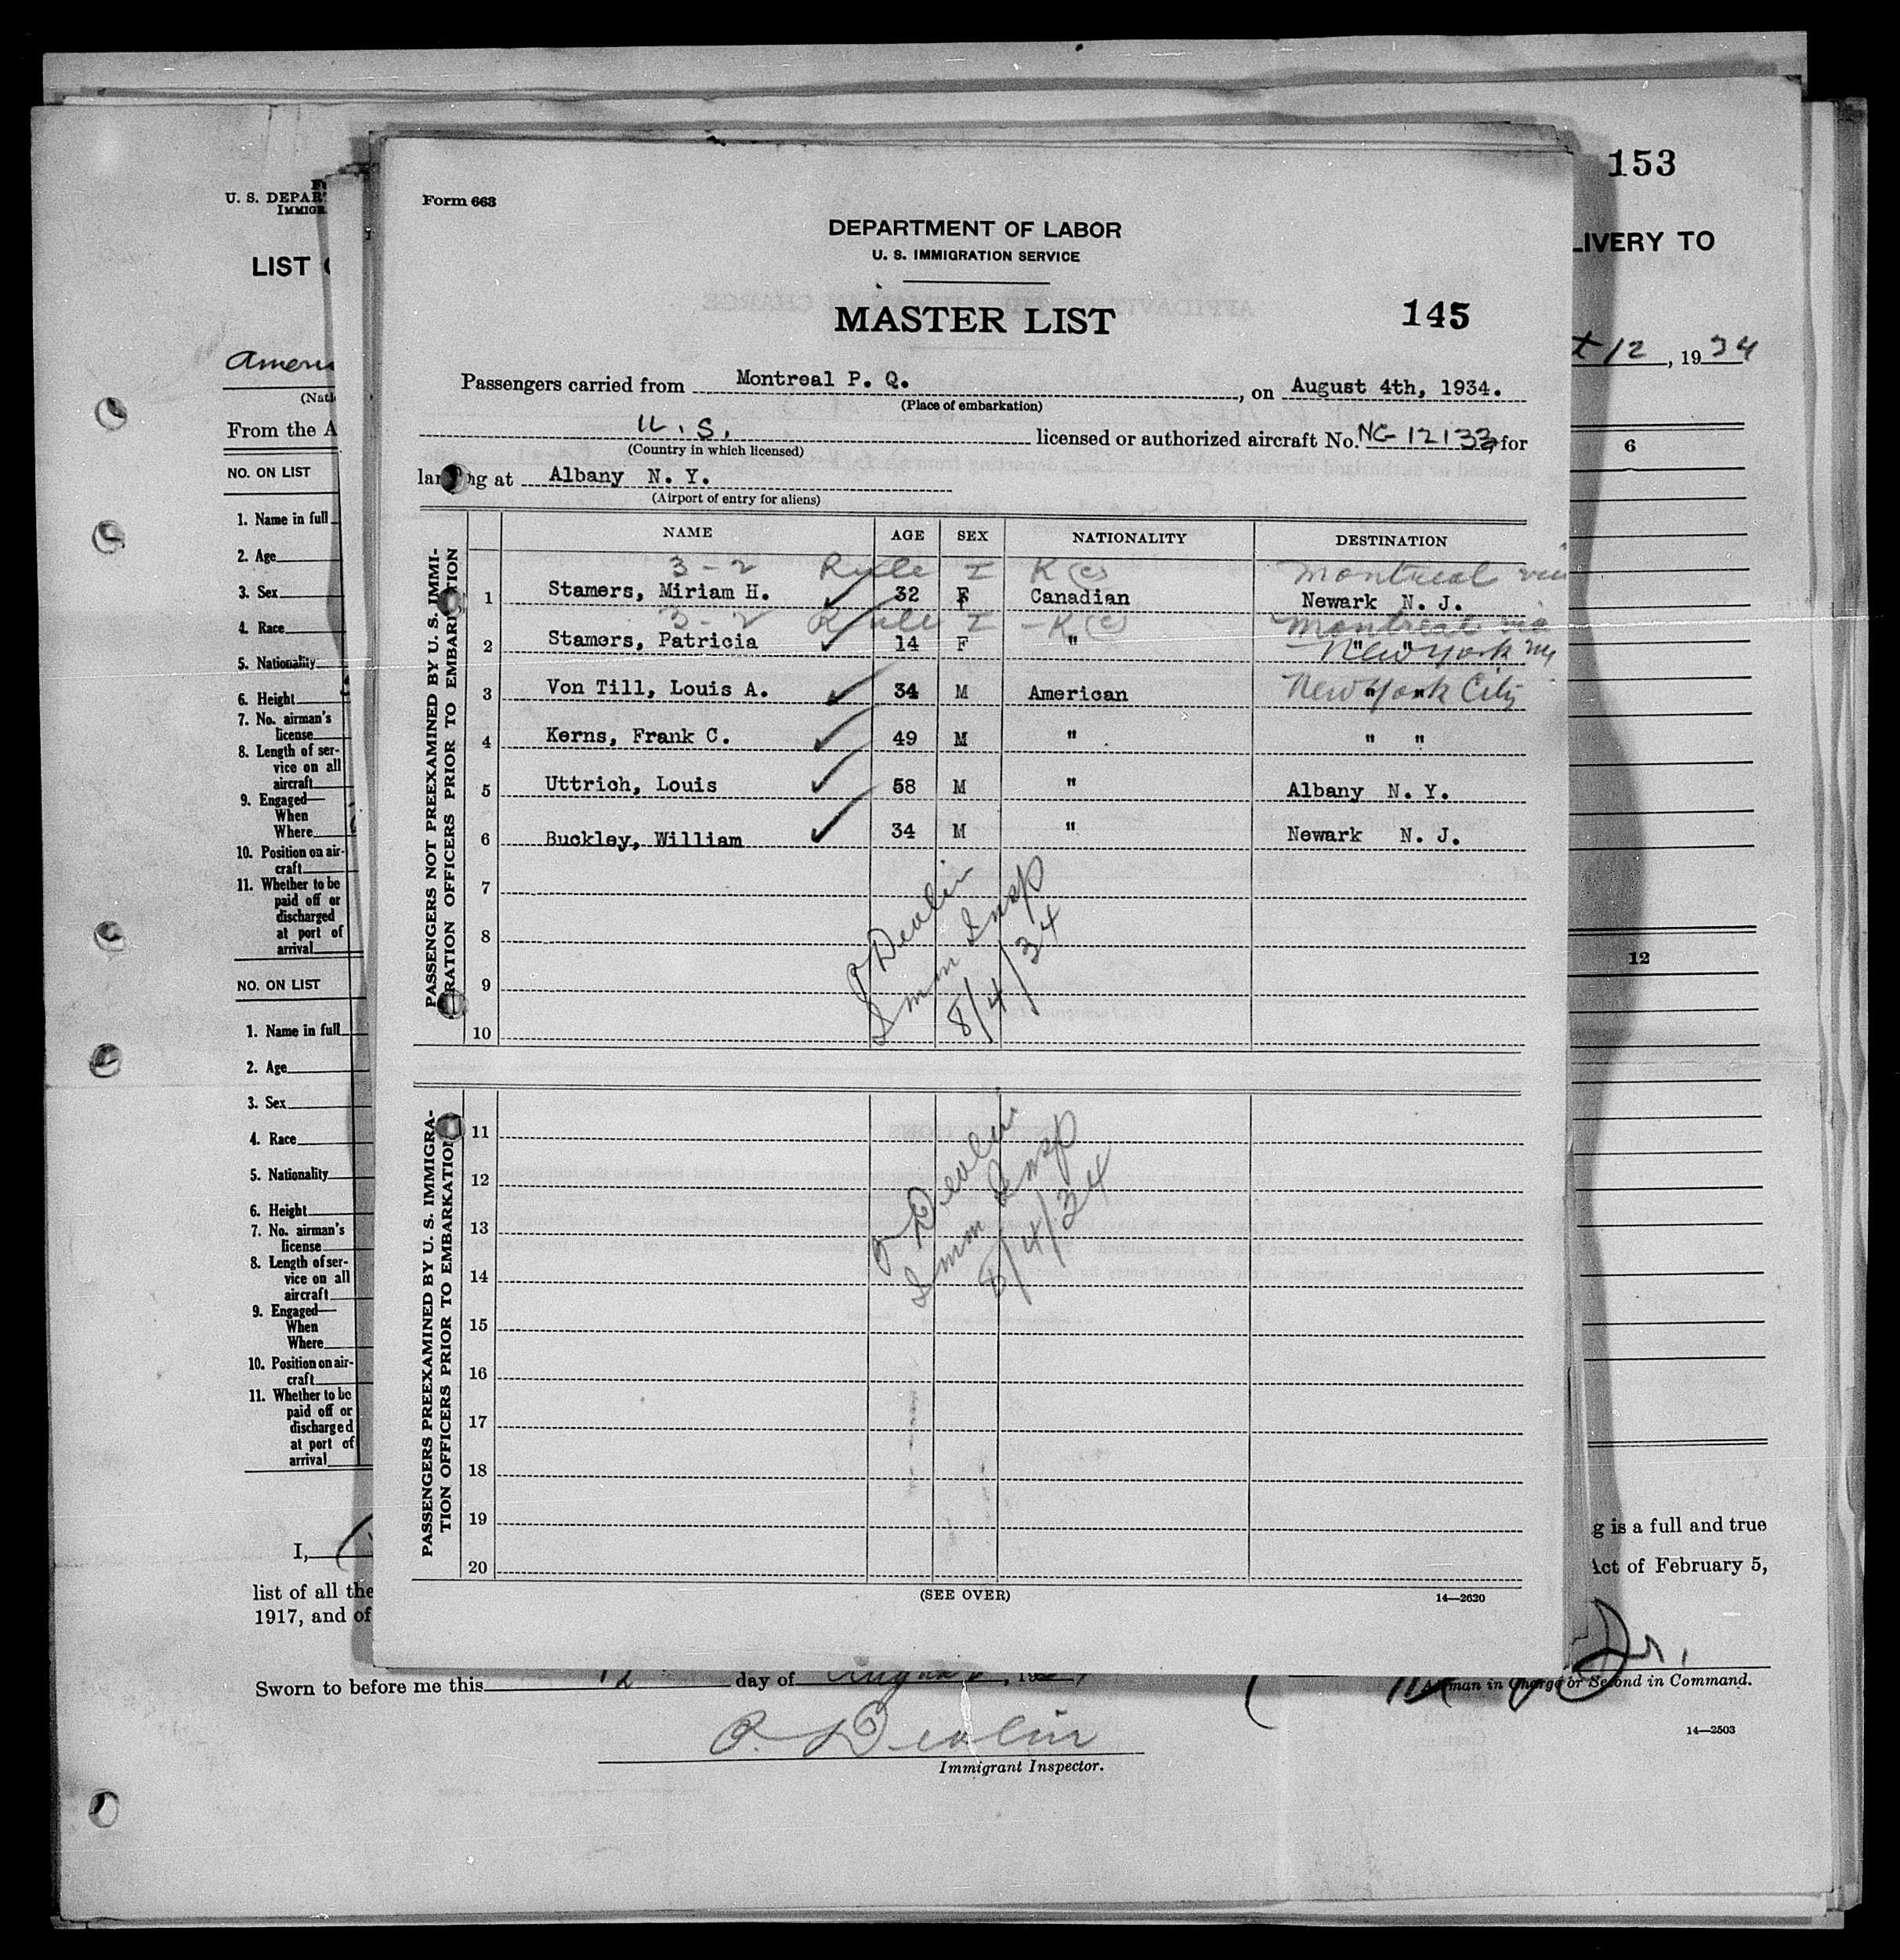 153
Form 663
U. S. DEPAR
IMMIGR
DEPARTMENT OF LABOR
U. S. IMMIGRATION SERVICE
LIST
LIVERY TO
MASTER LIST
145
Ameri
t 12, 1934
(Nati
Passengers carried from Montreal P. Q., on August 4th, 1934.
(Place of embarkation)
From the A
U.S. licensed or authorized aircraft No. NC-12133, for
(Country in which licensed)
landing at Albany N. Y.
(Airport of entry for aliens)
6
PASSENGERS NOT PREEXAMINED BY U. S. IMMIGRATION OFFICERS PRIOR TO EMBARKATION
NAME AGE SEX NATIONALITY DESTINATION
3-2 Rule I K(c) Montreal via
1 Stamers, Miriam H. 32 F Canadian Newark N. J.
3-2 Rule I-K(c) Montreal via
2 Stamers, Patricia 14 F " " " New York NY
3 Von Till, Louis A. 34 M American " " New York City
4 Kerns, Frank C. 49 M " " "
5 Uttrich, Louis 58 M " Albany N. Y.
6 Buckley, William 34 M " Newark N. J.
7
8
9
10
Devlin
Imm Insp
8/4/34
PASSENGERS PREEXAMINED BY U. S. IMMIGRATION OFFICERS PRIOR TO EMBARKATION
11
12
13
14
15
16
17
18
19
20
Devlin
Imm Insp
8/4/34
(SEE OVER)
14—2620
NO. ON LIST
1. Name in full
2. Age
3. Sex
4. Race
5. Nationality
6. Height
7. No. airman's
license
8. Length of ser-
vice on all
aircraft
9. Engaged—
When
Where
10. Position on air-
craft
11. Whether to be
paid off or
discharged
at port of
arrival
12
NO. ON LIST
1. Name in full
2. Age
3. Sex
4. Race
5. Nationality
6. Height
7. No. airman's
license
8. Length of ser-
vice on all
aircraft
9. Engaged—
When
Where
10. Position on air-
craft
11. Whether to be
paid off or
discharged
at port of
arrival
I,
g is a full and true
list of all the
Act of February 5,
1917, and of
Jr.
Sworn to before me this 12 day of August, 19
Airman in Charge or Second in Command.
P. Devlin
Immigrant Inspector.
14—2503